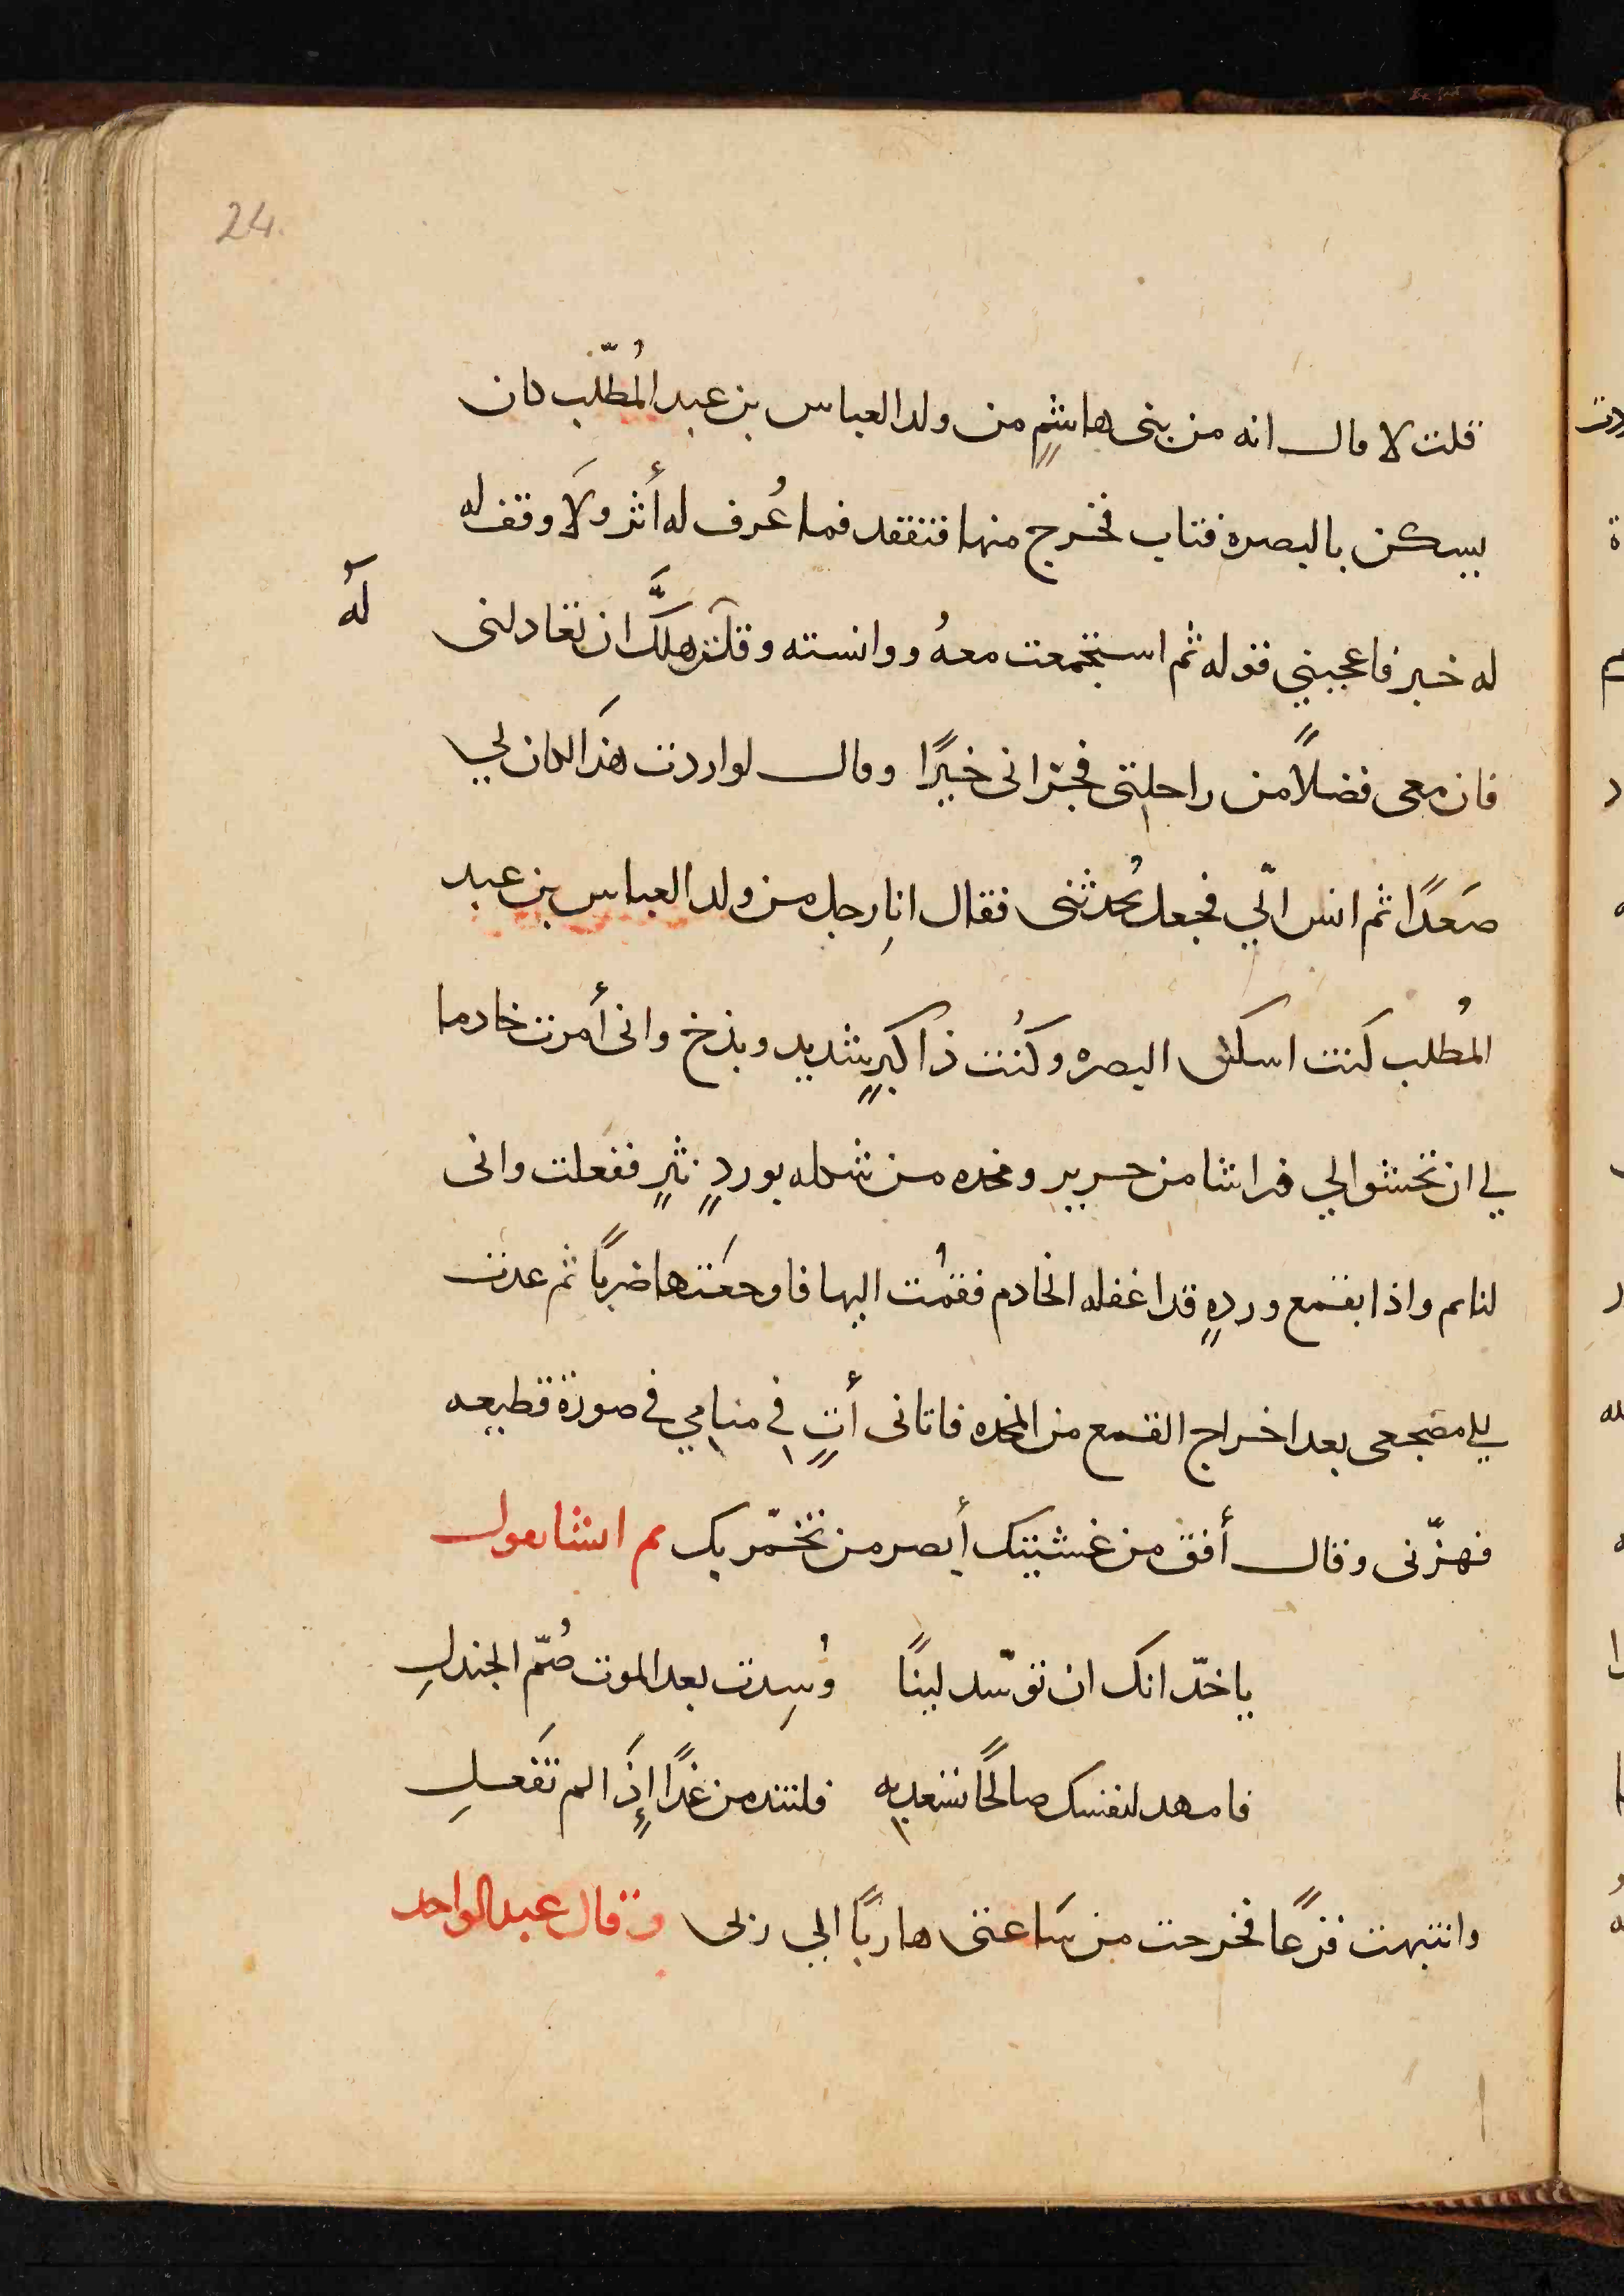 24.
قلت لا قال انه من بنى هاشمٍ من ولد العباس بن عبد المُطّلب كان
يسكن بالبصره فتاب فخرج منها فتفقد فما عُرف له أثر ولَا وقف له
له خبر فاعجبني قوله ثم استجمعت معهُ ووانسته وقلت هل لَّك ان تعادلنى
لهُ
فان معى فضلاً من راحلتى فجزانى خيرًا وقال لو اردت هذَا لكان لي
صَعدًا ثم انس الّي فجعل يُحدثنى فقال انا رجل من ولد العباس بن عبد
المُطلب كنت اسكن البصره وكُنت ذا كبرٍ شديد وبذخ وانى أمرت خادما
لي ان تحشوا لي فراشا من حرير ومخده من شمله بوردٍ نثيرٍ ففعلت وانى
لنايم واذا بقمع وردهٍ قد اغفله الخادم فقمُت اليها فاوجعَتها ضربًا ثم عدت
الي مضجعى بعد اخراج القمع من المخده فاتانى أتٍ في منامي في صورة قطيعه
فهزّنى وقال أفق من غشيتك أبصر من تخمّريك ثم انشا يقول
ياخدّ انك ان توّسد لينًا وُسِدت بعد الموت صُمّ الجندلِ
فامهد لنفسك صالحًا تسعد به فلتندمن غدًا إِذَا لم تَفعلِ
وانتبهت فزعًا فخرجت من سَاعتى هاربًا الي ربى وقال عبد الواحد